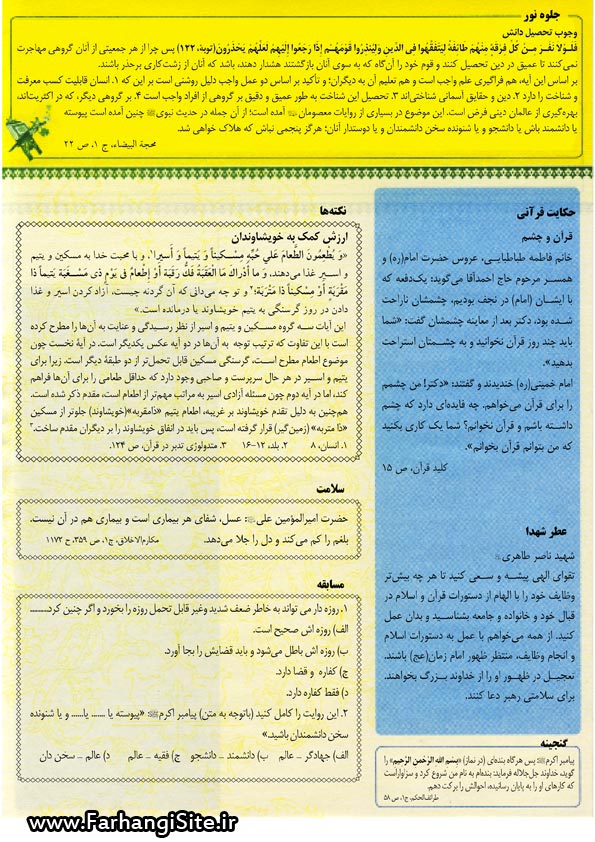 جلوه نور
وجوب تحصیل دانش
فَلَـوْلا نَفَـرَ مِـنْ كُلِّ فِرْقَةٍ مِنْهُمْ طائِفَةٌ لِيَتَفَقَّهُوا فِى الدِّينِ وَلِيُنْذِرُوا قَوْمَهُـمْ إِذا رَجَعُوا إِلَيْهِمْ لَعَلَّهُمْ يَحْذَرُونَ(توبه، ۱۲۲) پس چرا از هر جمعیتی از آنان گروهی مهاجرت
نمی‌کنند تا عمیق در دین تحصیل کنند و قوم خود را آن‌گاه که به سوی آنان بازگشتند هشدار دهند، باشد که آنان از زشت‌کاری بر حذر باشند.
بر اساس این آیه، هم فراگیری علم واجب است و هم تعلیم آن به دیگران؛ و تأکید بر اساس دو عمل واجب دلیل روشنی است بر این که ۱. انسان قابلیت کسب معرفت
و شناخت را دارد ۲. دین و حقایق آسمانی شناختی‌اند ۳. تحصیل این شناخت به طور عمیق و دقیق بر گروهی از افراد واجب است ۴. بر گروهی دیگر، که در اکثریت‌اند،
بهره‌گیری از عالمان دینی فرض است. این موضوع در بسیاری از روایات معصومان آمده است؛ از آن جمله در حدیث نبوی چنین آمده است پیوسته
یا دانشمند باش یا دانشجو و یا شنونده سخن دانشمندان و یا دوستدار آنان؛ هرگز پنجمی نباش که هلاک خواهی شد.
محجة البیضاء، ج ۱، ص ۲۲
حکایت قرآنی
قرآن و چشم
خانم فاطمه طباطبایی، عروس حضرت امام(ره) و
همسر مرحوم حاج احمدآقا می‌گوید: یک‌دفعه که
با ایشان (امام) در نجف بودیم، چشمشان ناراحت
شده بود، دکتر بعد از معاینه چشمشان گفت: «شما
باید چند روز قرآن نخوانید و به چشمتان استراحت
بدهید».
امام خمینی(ره) خندیدند و گفتند: «دکتر! من چشمم
را برای قرآن می‌خواهم. چه فایده‌ای دارد که چشم
داشته باشم و قرآن نخوانم؟ شما یک کاری بکنید
که من بتوانم قرآن بخوانم».
کلید قرآن، ص ۱۵
عطر شهدا
شهید ناصر طاهری
تقوای الهی پیشه و سعی کنید تا هر چه بیش‌تر
وظایف خود را با الهام از دستورات قرآن و اسلام در
قبال خود و خانواده و جامعه بشناسید و بدان عمل
کنید. از همه می‌خواهم با عمل به دستورات اسلام
و انجام وظایف، منتظر ظهور امام زمان(عج) باشند.
تعجیل در ظهور او را از خداوند بزرگ بخواهند.
برای سلامتی رهبر دعا کنند.
گنجینه
پیامبر اکرم پس هرگاه بنده‌ای (در نماز) «بِسْمِ اللَّهِ الرَّحْمنِ الرَّحِیمِ» را
گوید، خداوند جل‌جلاله فرماید: بنده‌ام به نام من شروع کرد و سزاوار است
که کارهای او را به پایان رسانیده، احوالش را برکت دهم.
طرائف‌الحکم، ج۱، ص ۵۸
نکته‌ها
ارزش کمک به خویشاوندان
«وَ يُطْعِمُونَ الطَّعامَ عَلى حُبِّهِ مِسْكِيناً وَ يَتِيماً وَ أَسِيرا۱، و با محبت خدا به مسکین و یتیم
و اسیر غذا می‌دهند، وَ ما أَدْراكَ مَا الْعَقَبَةُ فَكُّ رَقَبَةٍ أَوْ إِطْعامٌ فِى يَوْمٍ ذِى مَسْغَبَةٍ يَتِيماً ذا
مَقْرَبَةٍ أَوْ مِسْكِيناً ذا مَتْرَبَةٍ؛۲ و تو چه می‌دانی که آن گردنه چیست، آزاد کردن اسیر و غذا
دادن در روز گرسنگی به یتیم خویشاوند یا درمانده است.»
این آیات سه گروه مسکین و یتیم و اسیر از نظر رسیدگی و عنایت به آن‌ها را مطرح کرده
است با این تفاوت که ترتیب توجه به آن‌ها در دو آیه عکس یکدیگر است. در آیهٔ نخست چون
موضوع اطعام مطرح است، گرسنگی مسکین قابل تحمل‌تر از دو طبقهٔ دیگر است. زیرا برای
یتیم و اسیر در هر حال سرپرست و صاحبی وجود دارد که حداقل طعامی را برای آن‌ها فراهم
کند، اما در آیه دوم چون مسئله آزادی اسیر به مراتب مهم‌تر از اطعام است، مقدم ذکر شده است.
هم‌چنین به دلیل تقدم خویشاوند بر غریبه، اطعام یتیم «ذامقربه»(خویشاوند) جلوتر از مسکین
«ذا متربه» (زمین‌گیر) قرار گرفته است، پس باید در انفاق خویشاوند را بر دیگران مقدم ساخت.۳
۱. انسان، ۸ ۲. بلد، ۱۲-۱۶ ۳. متدولوژی تدبر در قرآن، ص ۱۲۴.
سلامت
حضرت امیرالمؤمین علی: عسل، شفای هر بیماری است و بیماری هم در آن نیست.
بلغم را کم می‌کند و دل را جلا می‌دهد. مکارم‌الاخلاق، ج۱، ص ۳۵۹، ح ۱۱۷۲
مسابقه
۱. روزه دار می تواند به خاطر ضعف شدید وغیر قابل تحمل روزه را بخورد و اگر چنین کرد........
الف) روزه اش صحیح است.
ب) روزه اش باطل می‌شود و باید قضایش را بجا آورد.
ج) کفاره و قضا دارد.
د) فقط کفاره دارد.
۲. این روایت را کامل کنید (باتوجه به متن) پیامبر اکرم «پیوسته یا ....... یا...... و یا شنونده
سخن دانشمندان باشید.»
الف) جهادگر _ عالم ب) دانشمند _ دانشجو ج) فقیه _ عالم د) عالم _ سخن دان
www.FarhangiSite.ir